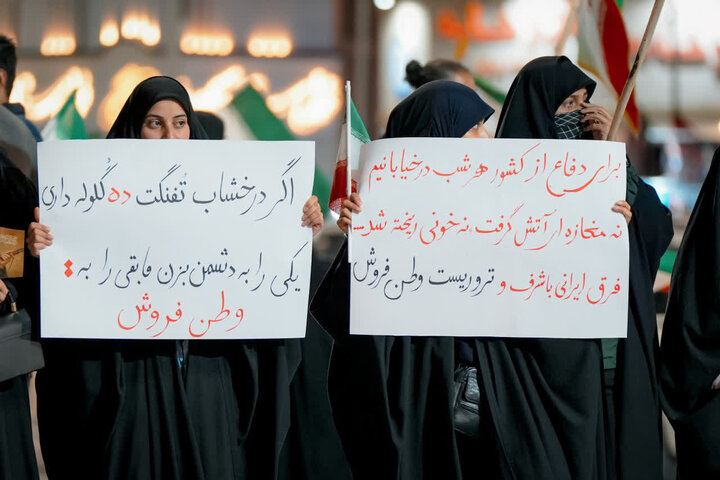 اگر در خشاب تُفنگت ده گُلوله داری
یکی را به دشمن بزن مابقی را به :
وطن فروش
برای دفاع از کشور هر شب در خیابانیم
نه مغازه ای آتش گرفت ، نه خونی ریخته شد...
فرق ایرانی باشرف و تروریست وطن فروش